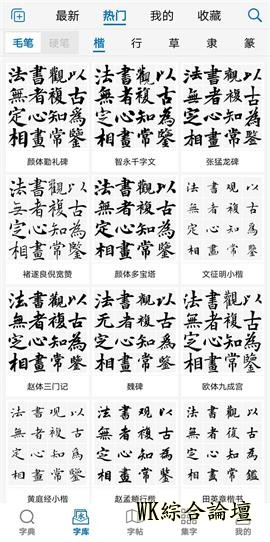 最新 热门 我的 收藏
毛笔 硬笔 楷 行 草 隶 篆
法書觀以
無者複古
定心知為
相畫常鑒
颜体勤礼碑
法書觀以
無者複古
定心知為
相畫常鑒
智永千字文
法書觀以
無者複古
定心知為
相畫常鑒
张猛龙碑
法書觀以
無者複古
定心知為
相畫常鑒
褚遂良倪宽赞
法書觀以
無者複古
定心知為
相畫常鑒
颜体多宝塔
法書觀以
無者複古
定心知為
相畫常鑒
文征明小楷
法書觀以
無者複古
定心知為
相畫常鑒
赵体三门记
法書觀以
元者複古
定心知為
相畫常鑒
魏碑
法書觀以
無者複古
定心知為
相畫常鑒
欧体九成宫
法書觀以
無者複古
定心知為
相畫常
黄庭经小楷
法書觀以
無者複古
定心知為
相畫常鑒
赵孟頫行楷
法書觀以
無者複古
定心知為
相畫常鑒
田英章楷书
WK綜合論壇
字典 字库 字帖 集字 我的